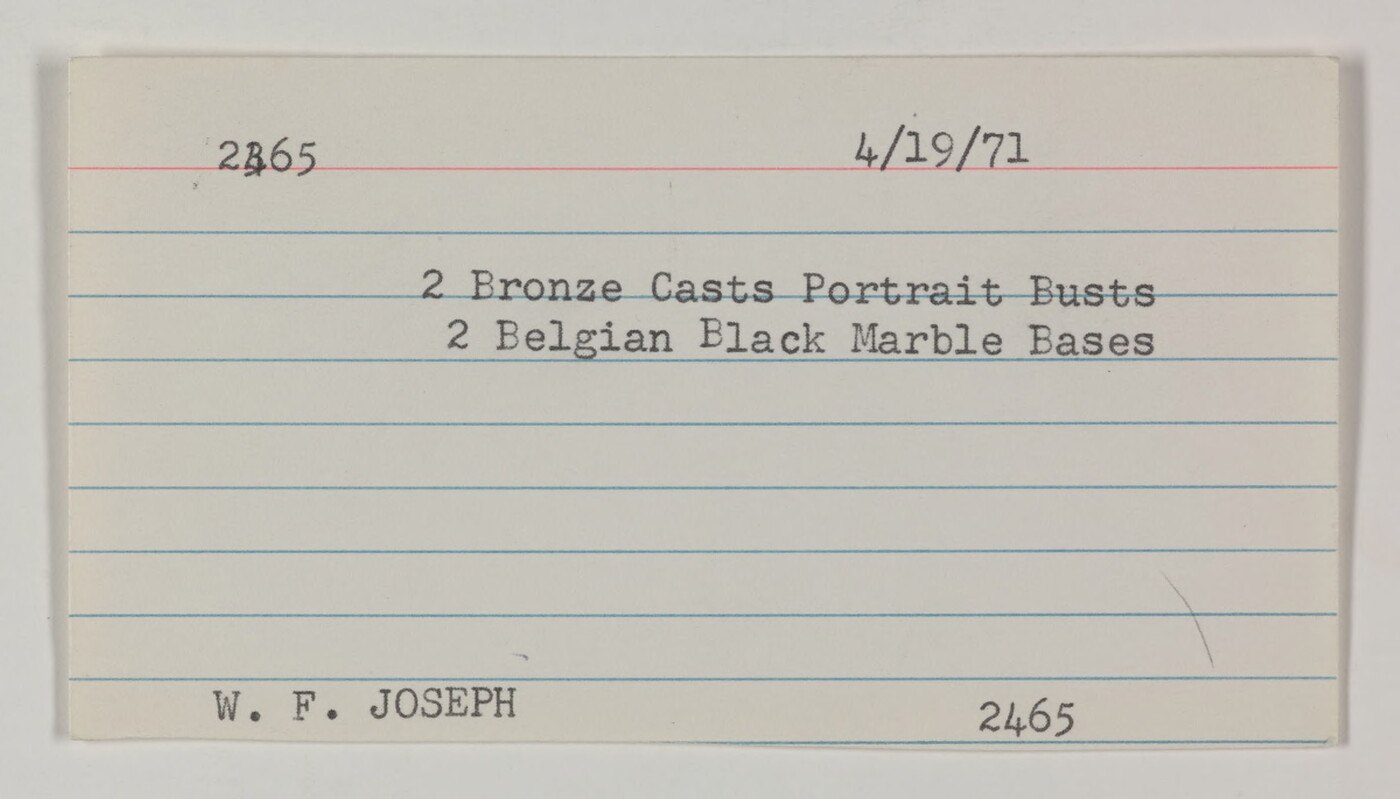 2465 4/19/71
2 Bronze Casts Portrait Busts
2 Belgian Black Marble Bases
W. F. JOSEPH 2465